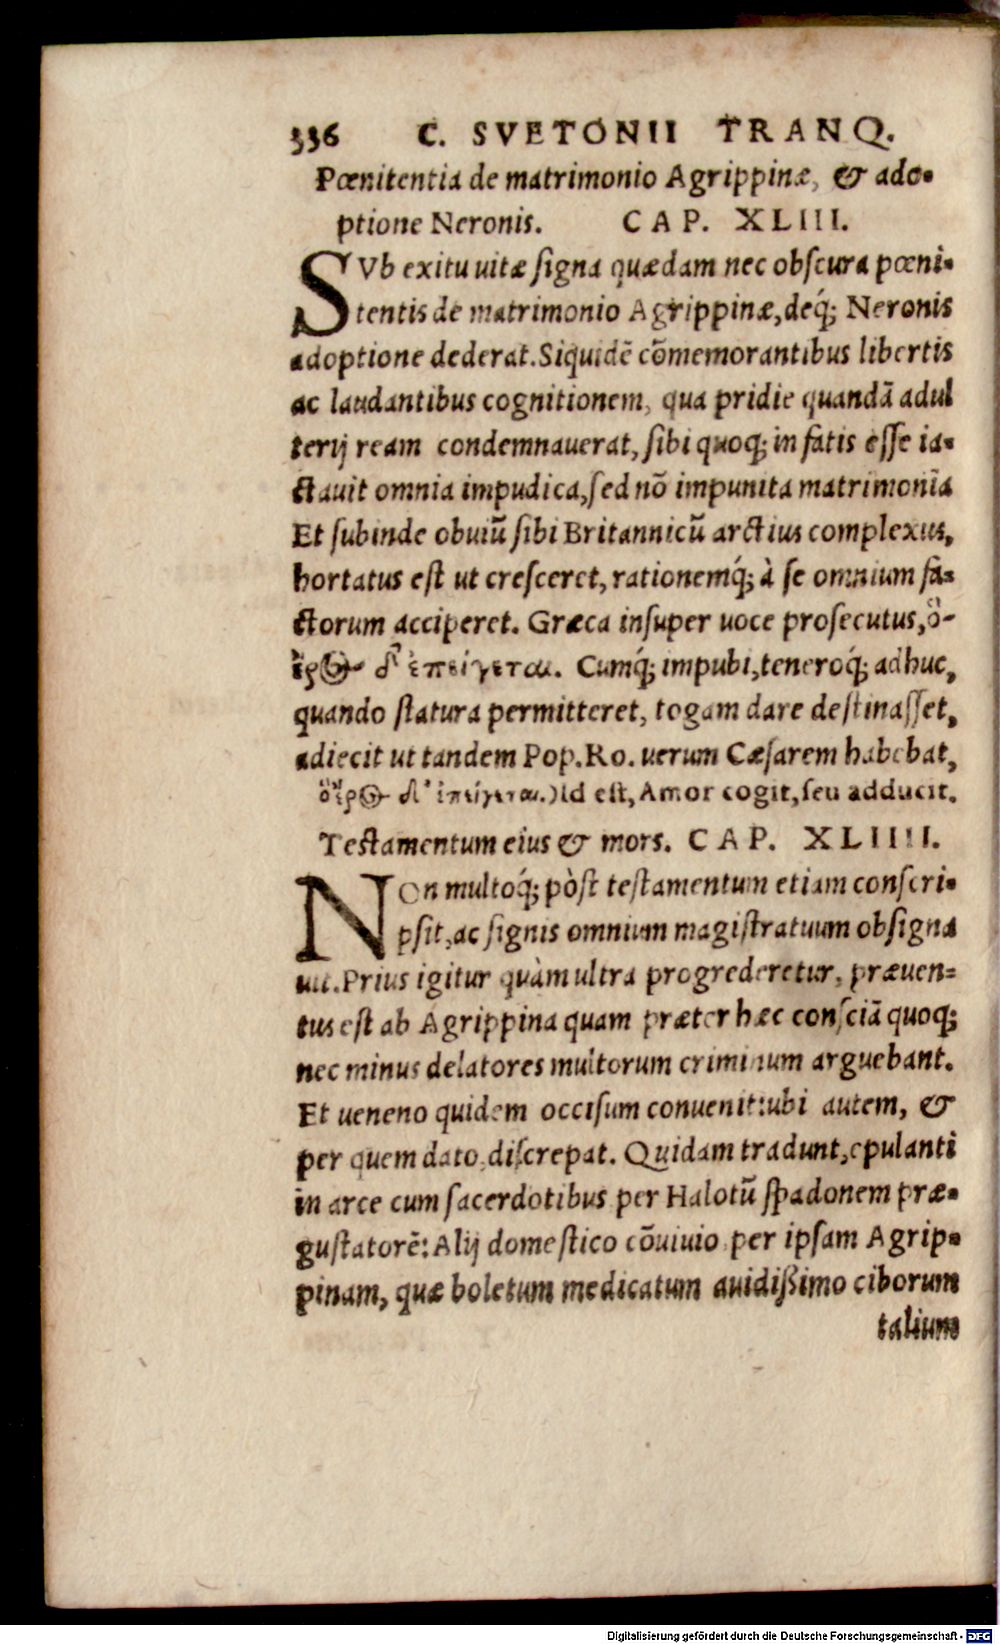 336 C. SVETONII TRANQ.
Pœnitentia de matrimonio Agrippinæ, & ado-
ptione Neronis. CAP. XLIII.
SVb exitu uitæ ſigna quædam nec obſcura pœni-
tentis de matrimonio Agrippinæ, deq́; Neronis
adoptione dederat. Siquidē cōmemorantibus libertis
ac laudantibus cognitionem, qua pridie quandā adul
terij ream condemnauerat, ſibi quoq; in fatis eſſe ia-
ctauit omnia impudica, ſed nō impunita matrimonia
Et ſubinde obuiū ſibi Britannicū arctius complexus,
hortatus eſt ut creſceret, rationemq́; à ſe omnium fa-
ctorum acciperet. Græca inſuper uoce proſecutus, ὁ-
ἴρος δ' ἐπείγεται. Cumq́; impubi, teneroq́; adhuc,
quando ſtatura permitteret, togam dare deſtinaſſet,
adiecit ut tandem Pop. Ro. uerum Cæſarem habebat,
ὁἴρος δ' ἐπείγεται.) Id est, Amor cogit, ſeu adducit.
Teſtamentum eius & mors. CAP. XLIIII.
NOn multoq́; pòſt teſtamentum etiam conſcri-
pſit, ac ſignis omnium magiſtratuum obſigna
uit. Prius igitur quàm ultra progrederetur, præuen-
tus eſt ab Agrippina quam præter hæc conſciā quoq;
nec minus delatores multorum criminum arguebant.
Et ueneno quidem occiſum conuenit: ubi autem, &
per quem dato, diſcrepat. Quidam tradunt, epulanti
in arce cum ſacerdotibus per Halotū ſpadonem præ-
guſtatorē: Alij domeſtico cōuiuio per ipſam Agrip-
pinam, quæ boletum medicatum auidißimo ciborum
talium
Digitalisierung gefördert durch die Deutsche Forschungsgemeinschaft - DFG